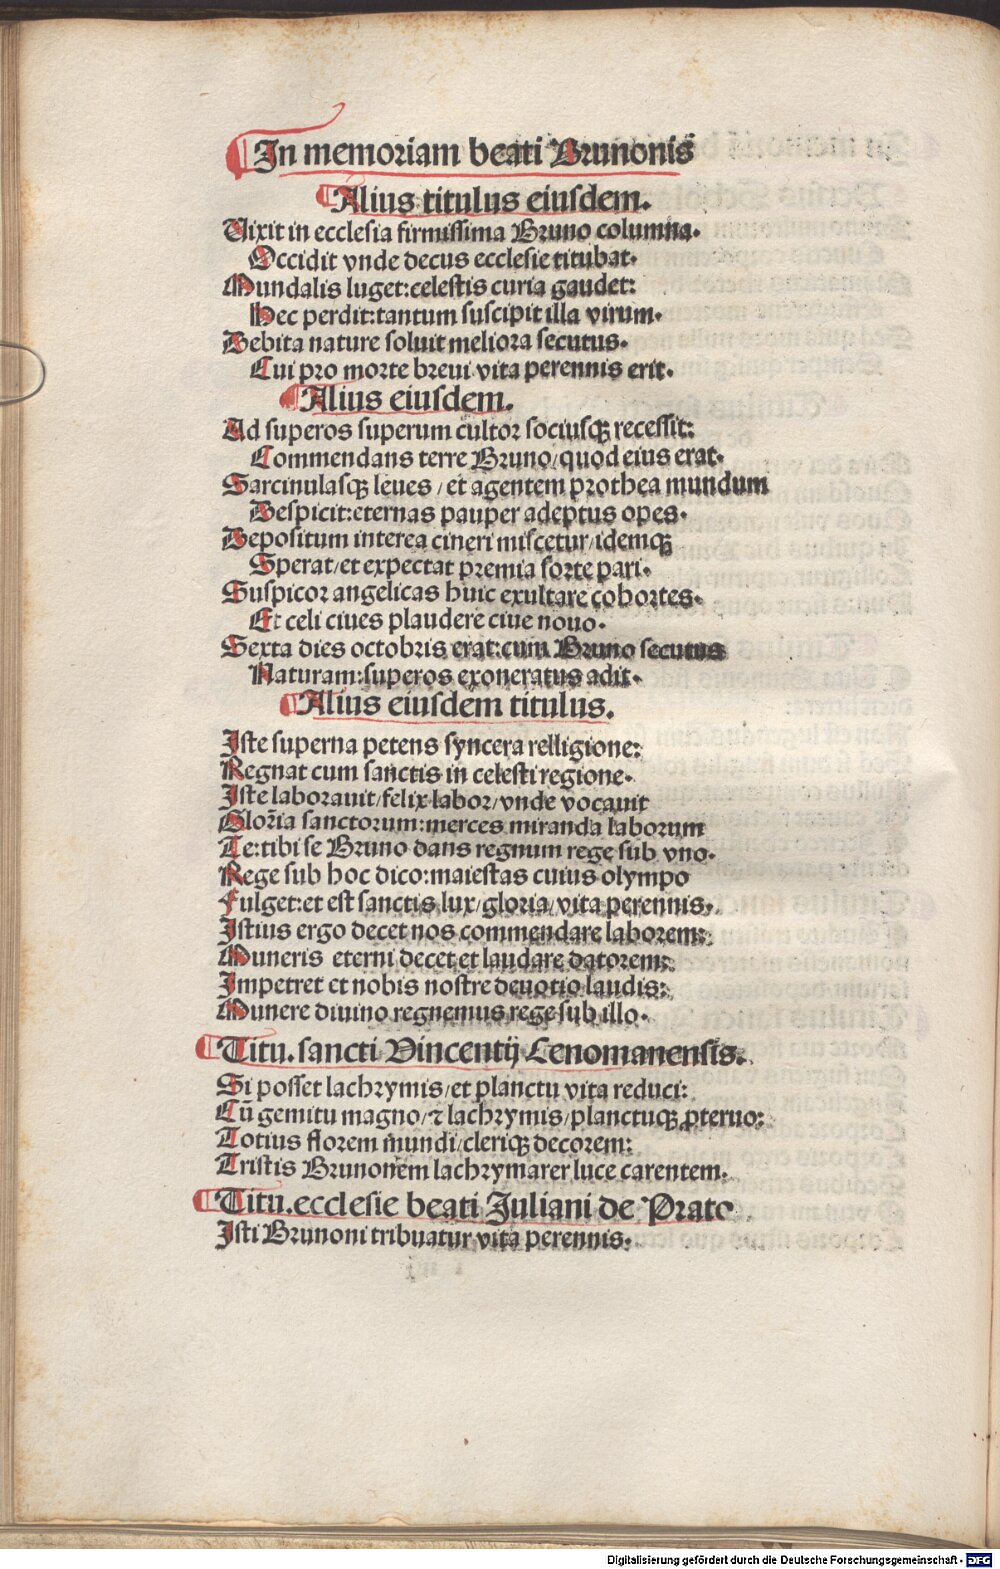 In memoriam beati Brunonis
Alius titulus eiusdem.
Vixit in ecclesia firmissima Bruno columna.
Occidit vnde decus ecclesie titubat.
Mundalis luget: celestis curia gaudet:
Hec perdit: tantum suscipit illa virum.
Debita nature soluit meliora secutus.
Cui pro morte breui vita perennis erit.
Alius eiusdem.
Ad superos superum cultor sociusqꝫ recessit:
Commendans terre Bruno/ quod eius erat.
Sarcinulasqꝫ leues / et agentem prothea mundum
Despicit: eternas pauper adeptus opes.
Depositum interea cineri miscetur/ idemqꝫ
Sperat/ et expectat premia sorte pari.
Suspicor angelicas huic exultare cohortes.
Et celi ciues plaudere ciue nouo.
Sexta dies octobris erat: cum Bruno secutus
Naturam: superos exoneratus adit.
Alius eiusdem titulus.
Iste superna petens syncera relligione:
Regnat cum sanctis in celesti regione.
Iste laborauit/ felix labor/ vnde vocauit
Gloria sanctorum: merces miranda laborum
Te: tibi se Bruno dans regnum rege sub vno.
Rege sub hoc dico: maiestas cuius olympo
Fulget: et est sanctis lux/ gloria/ vita perennis.
Istius ergo decet nos commendare laborem:
Muneris eterni decet et laudare datorem:
Impetret et nobis nostre deuotio laudis:
Munere diuino regnemus rege sub illo.
Titu. sancti Vincentij Cenomanensis.
Si posset lachrymis/ et planctu vita reduci:
Cū gemitu magno/ ⁊ lachrymis/ planctuqꝫ ꝓteruo:
Totius florem mundi/ cleriqꝫ decorem:
Tristis Brunonem lachrymarer luce carentem.
Titu. ecclesie beati Juliani de Prato
Isti Brunoni tribuatur vita perennis.
Digitalisierung gefördert durch die Deutsche Forschungsgemeinschaft - DFG